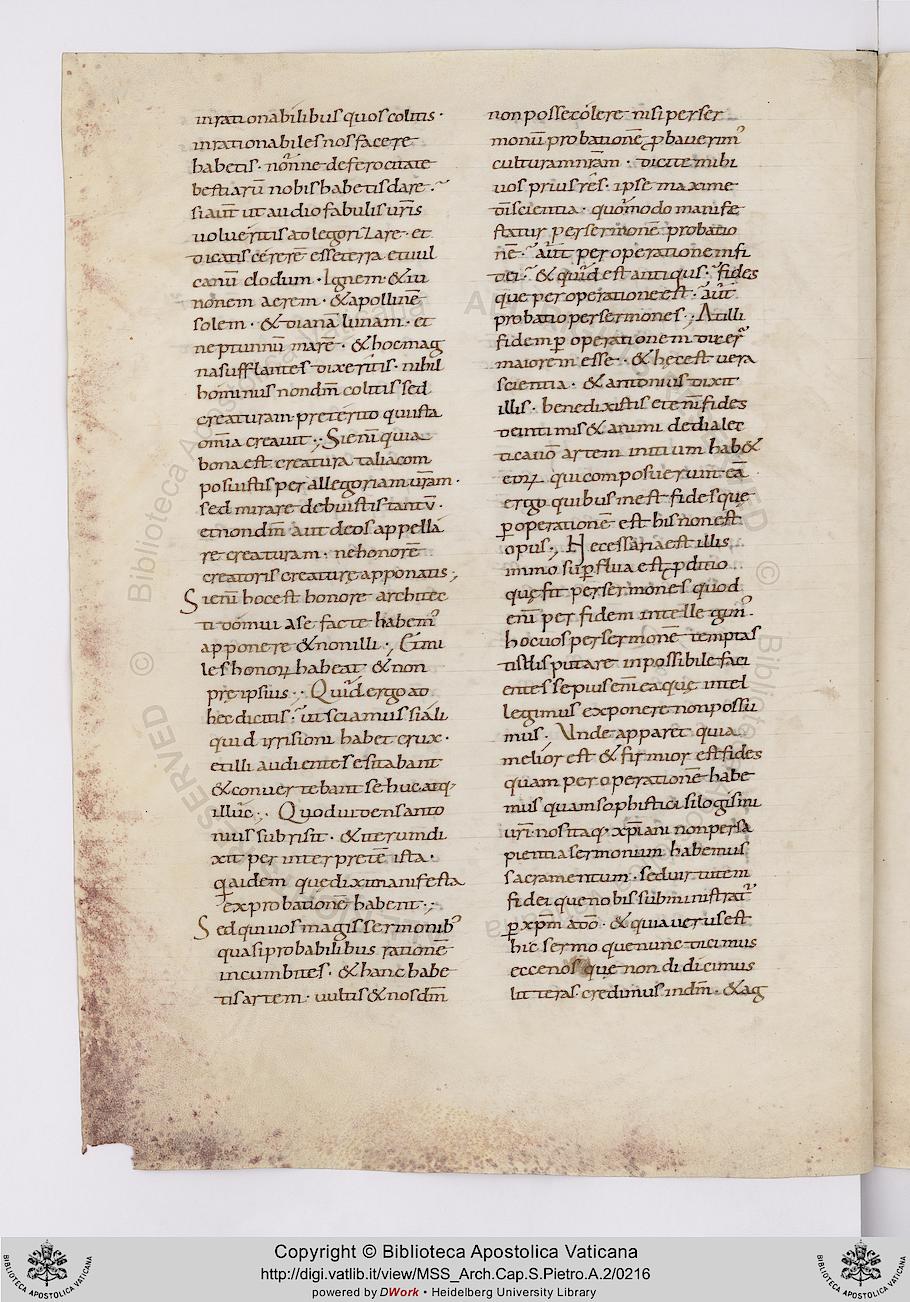 inrationabilibus quos colitis ·
inrationabiles nos facere
habetis · nonne de ferocitate
bestiarū nobis habetis dare ·
si aut̄ ut audio fabulis urīs
volueritis allegorizare · et
dicatis cererē esse terra et vul
canū clodum · Ignem · & iu
nonem aerem · & apollinē
solem · & dianā lunam · et
neptunnū marē · & hoc mag
na sufflantes dixeritis · nihil
hominus nondm̄ colitis sed
creaturam preterito qui ista
om̄ia creavit ·, Si enī quia
bona est creatura talia com
posuistis per allegoriam urām ·
sed mirare debuistis tantū ·
et non dm̄ aut deos appella
re creaturam · ne honorē
creatoris creaturę apponatis ·,
Si enī hoc est honore architec
ti domui a se facte habem̓
apponere & non illi ·, Simi
les honor habeat & non
pre ipsius · Quid ergo ad
hec dicitis · ut sciamus si ali
quid irrisioni habet crux ·
et illi audientes esitabant
& convertebant se huc atq;
illuc ·, Quod videns anto
nius subrisit · & iterum di
xit per interpretē ista ·
quidem que dixi manifesta
ex probationē habent ·,
Sed qui vos magis sermonib;
quasi probabilibus rationē
incumbites · & hanc habe
tis artem · vultis & nos dm̄
non posse colere nisi per ser
monū probationē pbaverim̓
culturam nrām · dicite mihi
vos prius rēs · ipse maxime
dī scientia · quomodo manife
statur per sermonē probatio
nē · aut̄ per operationem fi
dei · & quid est antiqus · fides
que per operatione est · aut̄
probatio per sermones ·, At illi
fidem p operationem dixer̄
maiorem esse · & hęc est vera
scientia · & antonius dixit
illis · benedixistis etenī fides
de intimis & animi de dialec
ticatiō artem initium hab&
eorum qui composuerunt eā
ergo quibus inest fides que
p operationē est his non est
opus ·, Necessaria est illis
immo supflua est pditio
quę fit per sermones quod
enī per fidem intellegim̓ ·
hoc vos per sermonē temptas
tis disputare inpossibile faci
entes sepius enī ea quę intel
legimus exponere non possu
mus · Unde apparet quia
melior est & firmior est fides
quam per operationē habe
mus quam sophistici silogismi
urī · nos itaq; xp̄iani non per sa
pientia sermonium habemus
sacramentum · sed virtutem
fidei que nobis subministrat̄
p xp̄m a dō · & quia verus est
hic sermo que nunc dicimus
ecce nos que non didicimus
litteras · credimus in dm̄ · & ag
Copyright © Biblioteca Apostolica Vaticana
http://digi.vatlib.it/view/MSS_Arch.Cap.S.Pietro.A.2/0216
powered by DWork • Heidelberg University Library